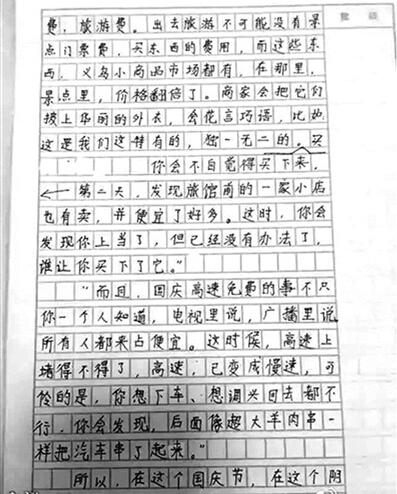 费，旅游费。出去旅游不可能没有景
点门票费，买东西的费用，而这些东
西，义乌小商品市场都有，在那里，
景点里，价格翻倍了。商家会把它们
披上华丽的外衣，会花言巧语，比如
这是我们这特有的，独一无二的。买
你会不自觉得买下来，
第二天，发现旅馆前的一家小店
也有卖，并便宜了好多。这时，你会
发现你上当了，但已经没有办法了，
谁让你买下了它。"
"而且，国庆高速免费的事不只
你一个人知道，电视里说，广播里说
所有人都来占便宜。这时候，高速上
堵得不得了，高速，已变成慢速，可
怜的是，你想下车、想调头回去都不
行，你会发现，后面像超大羊肉串一
样把汽车串了起来。"
所以，在这个国庆节，在这个阴